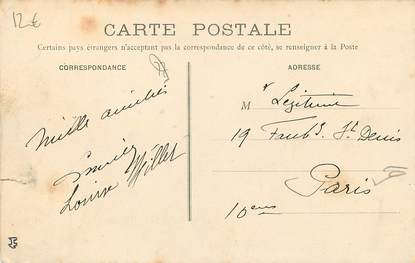 12€
CARTE POSTALE
Certains pays étrangers n'acceptant pas la correspondance de ce côté, se renseigner à la Poste
CORRESPONDANCE
ADRESSE
Mille amitiés
Louise Millet
Mr Légitime
19 Faubg St Denis
Paris
10ème